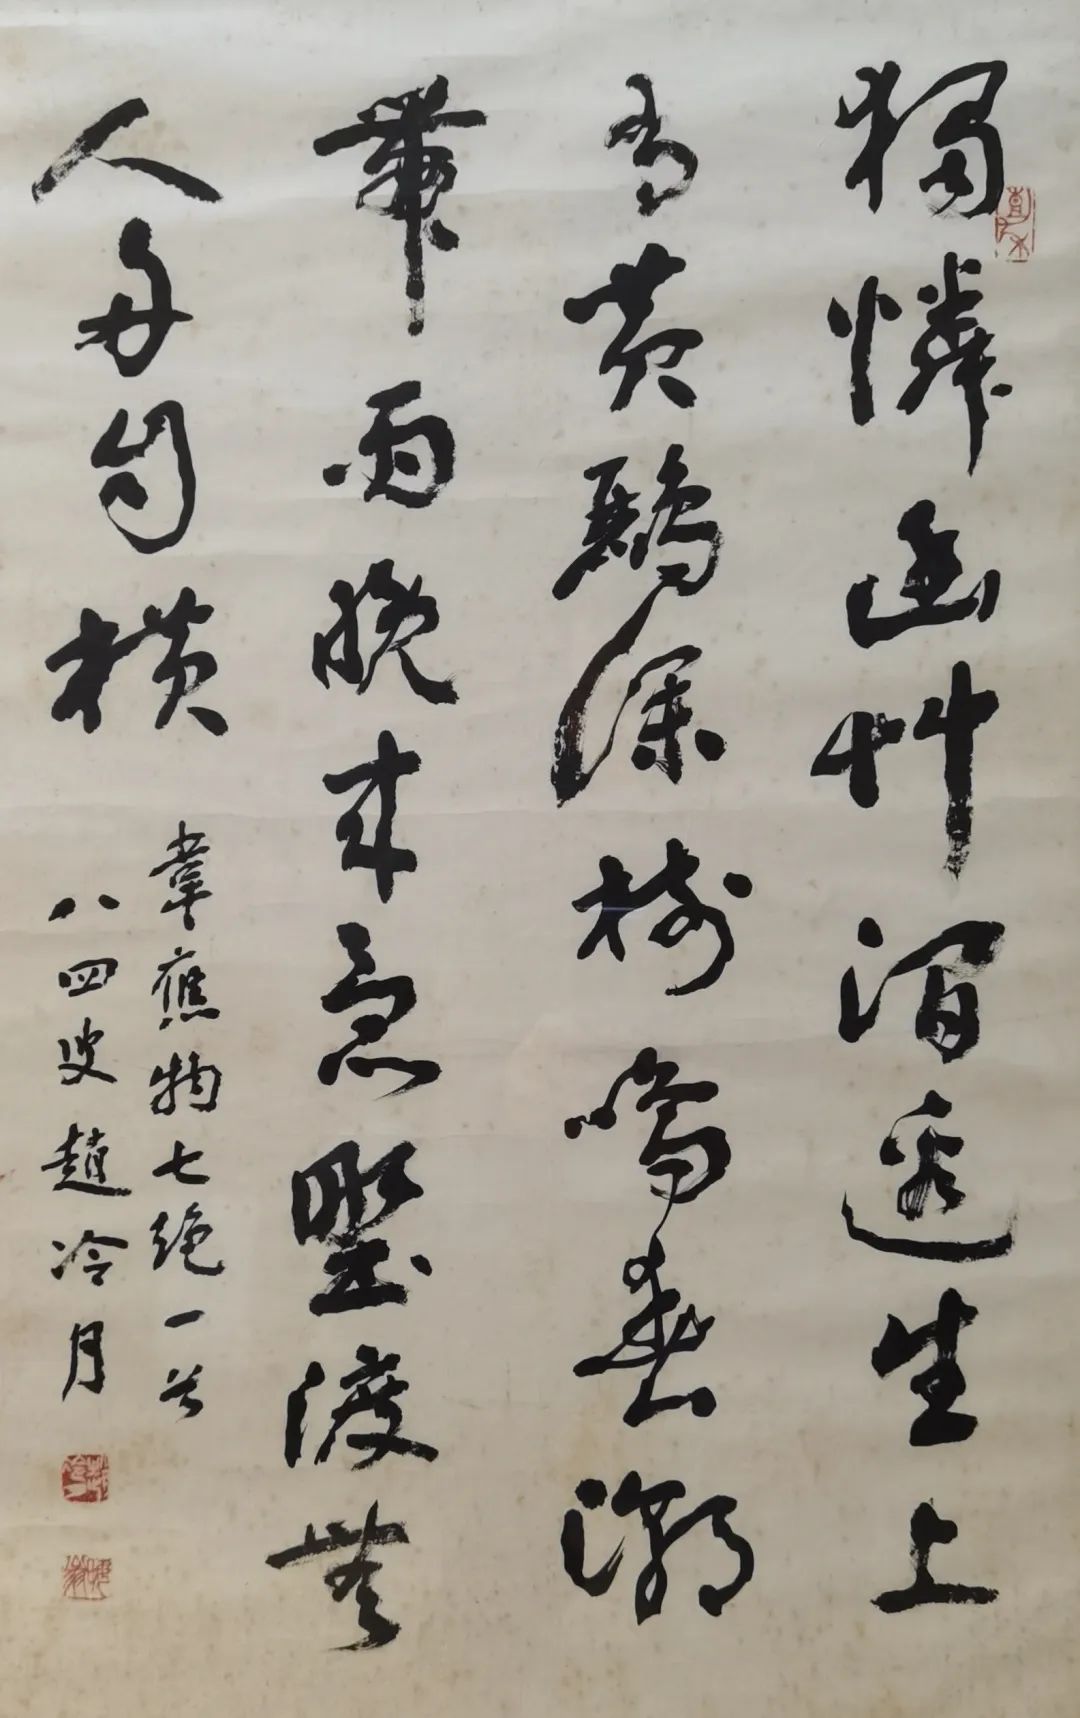 獨憐幽艸澗邊生上
有黃鸝深樹鳴春潮
帶雨晚來急野渡無
人舟自橫
韋應物七絕一首
八四叟趙冷月